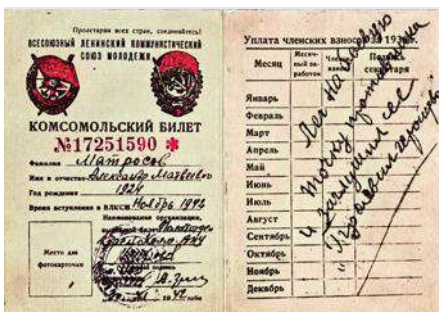 Пролетарии всех стран, соединяйтесь!
ВСЕСОЮЗНЫЙ ЛЕНИНСКИЙ КОММУНИСТИЧЕСКИЙ
СОЮЗ МОЛОДЕЖИ
КОМСОМОЛЬСКИЙ БИЛЕТ
№17251590
Фамилия Матросов
Имя и отчество Александр Матвеевич
Год рождения 1924
Время вступления в ВЛКСМ Ноябрь 1942
Наименование организации,
выдавшей билет
Место для
фотокарточки
Уплата членских взносов
Месяц
Месяч-
ный за-
работок
Подпись
секретаря
Январь
Февраль
Март
Апрель
Май
Июнь
Июль
Август
Сентябрь
Октябрь
Ноябрь
Декабрь
Лег на боевую
точку противника
и заглушил ее
проявил геройство